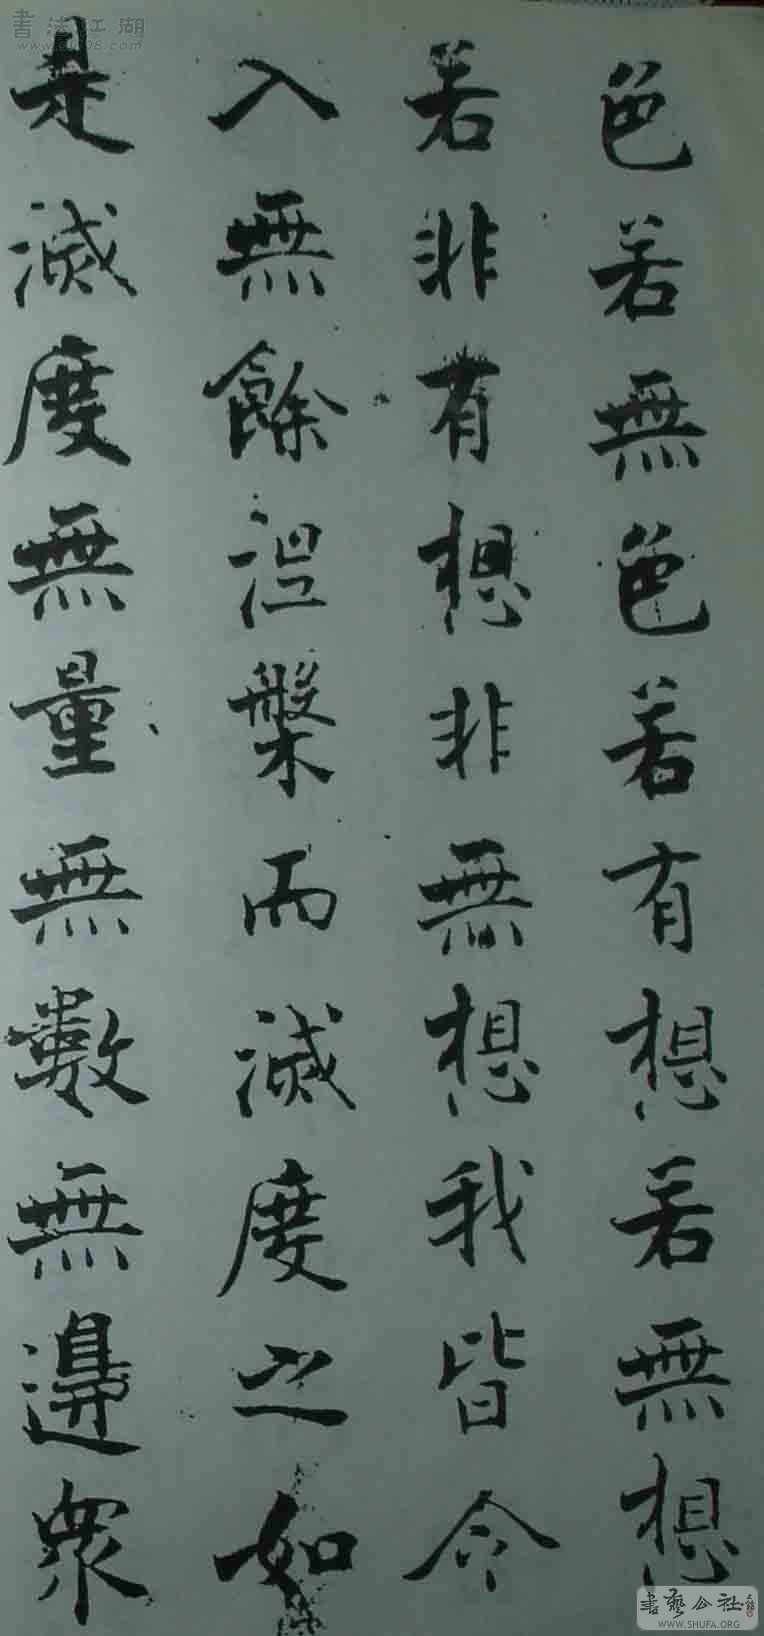 色若無色若有想若無想
若非有想非無想我皆令
入無餘涅槃而滅度之如
是滅度無量無數無邊眾
書法江湖
www.sf108.com
書藝公社
WWW.SHUFA.ORG